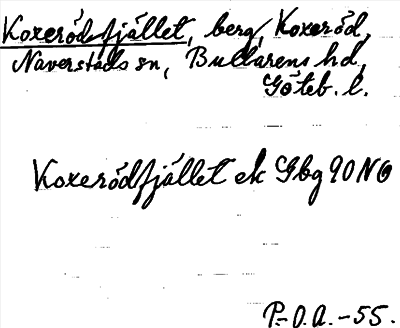 Koxerödsfjället, berg, Koxeröd,
Naverstads sn, Bullarens hd,
Göteb. l.
Koxerödfjället ek Gbg 90 NO
P.-O.A. -55.